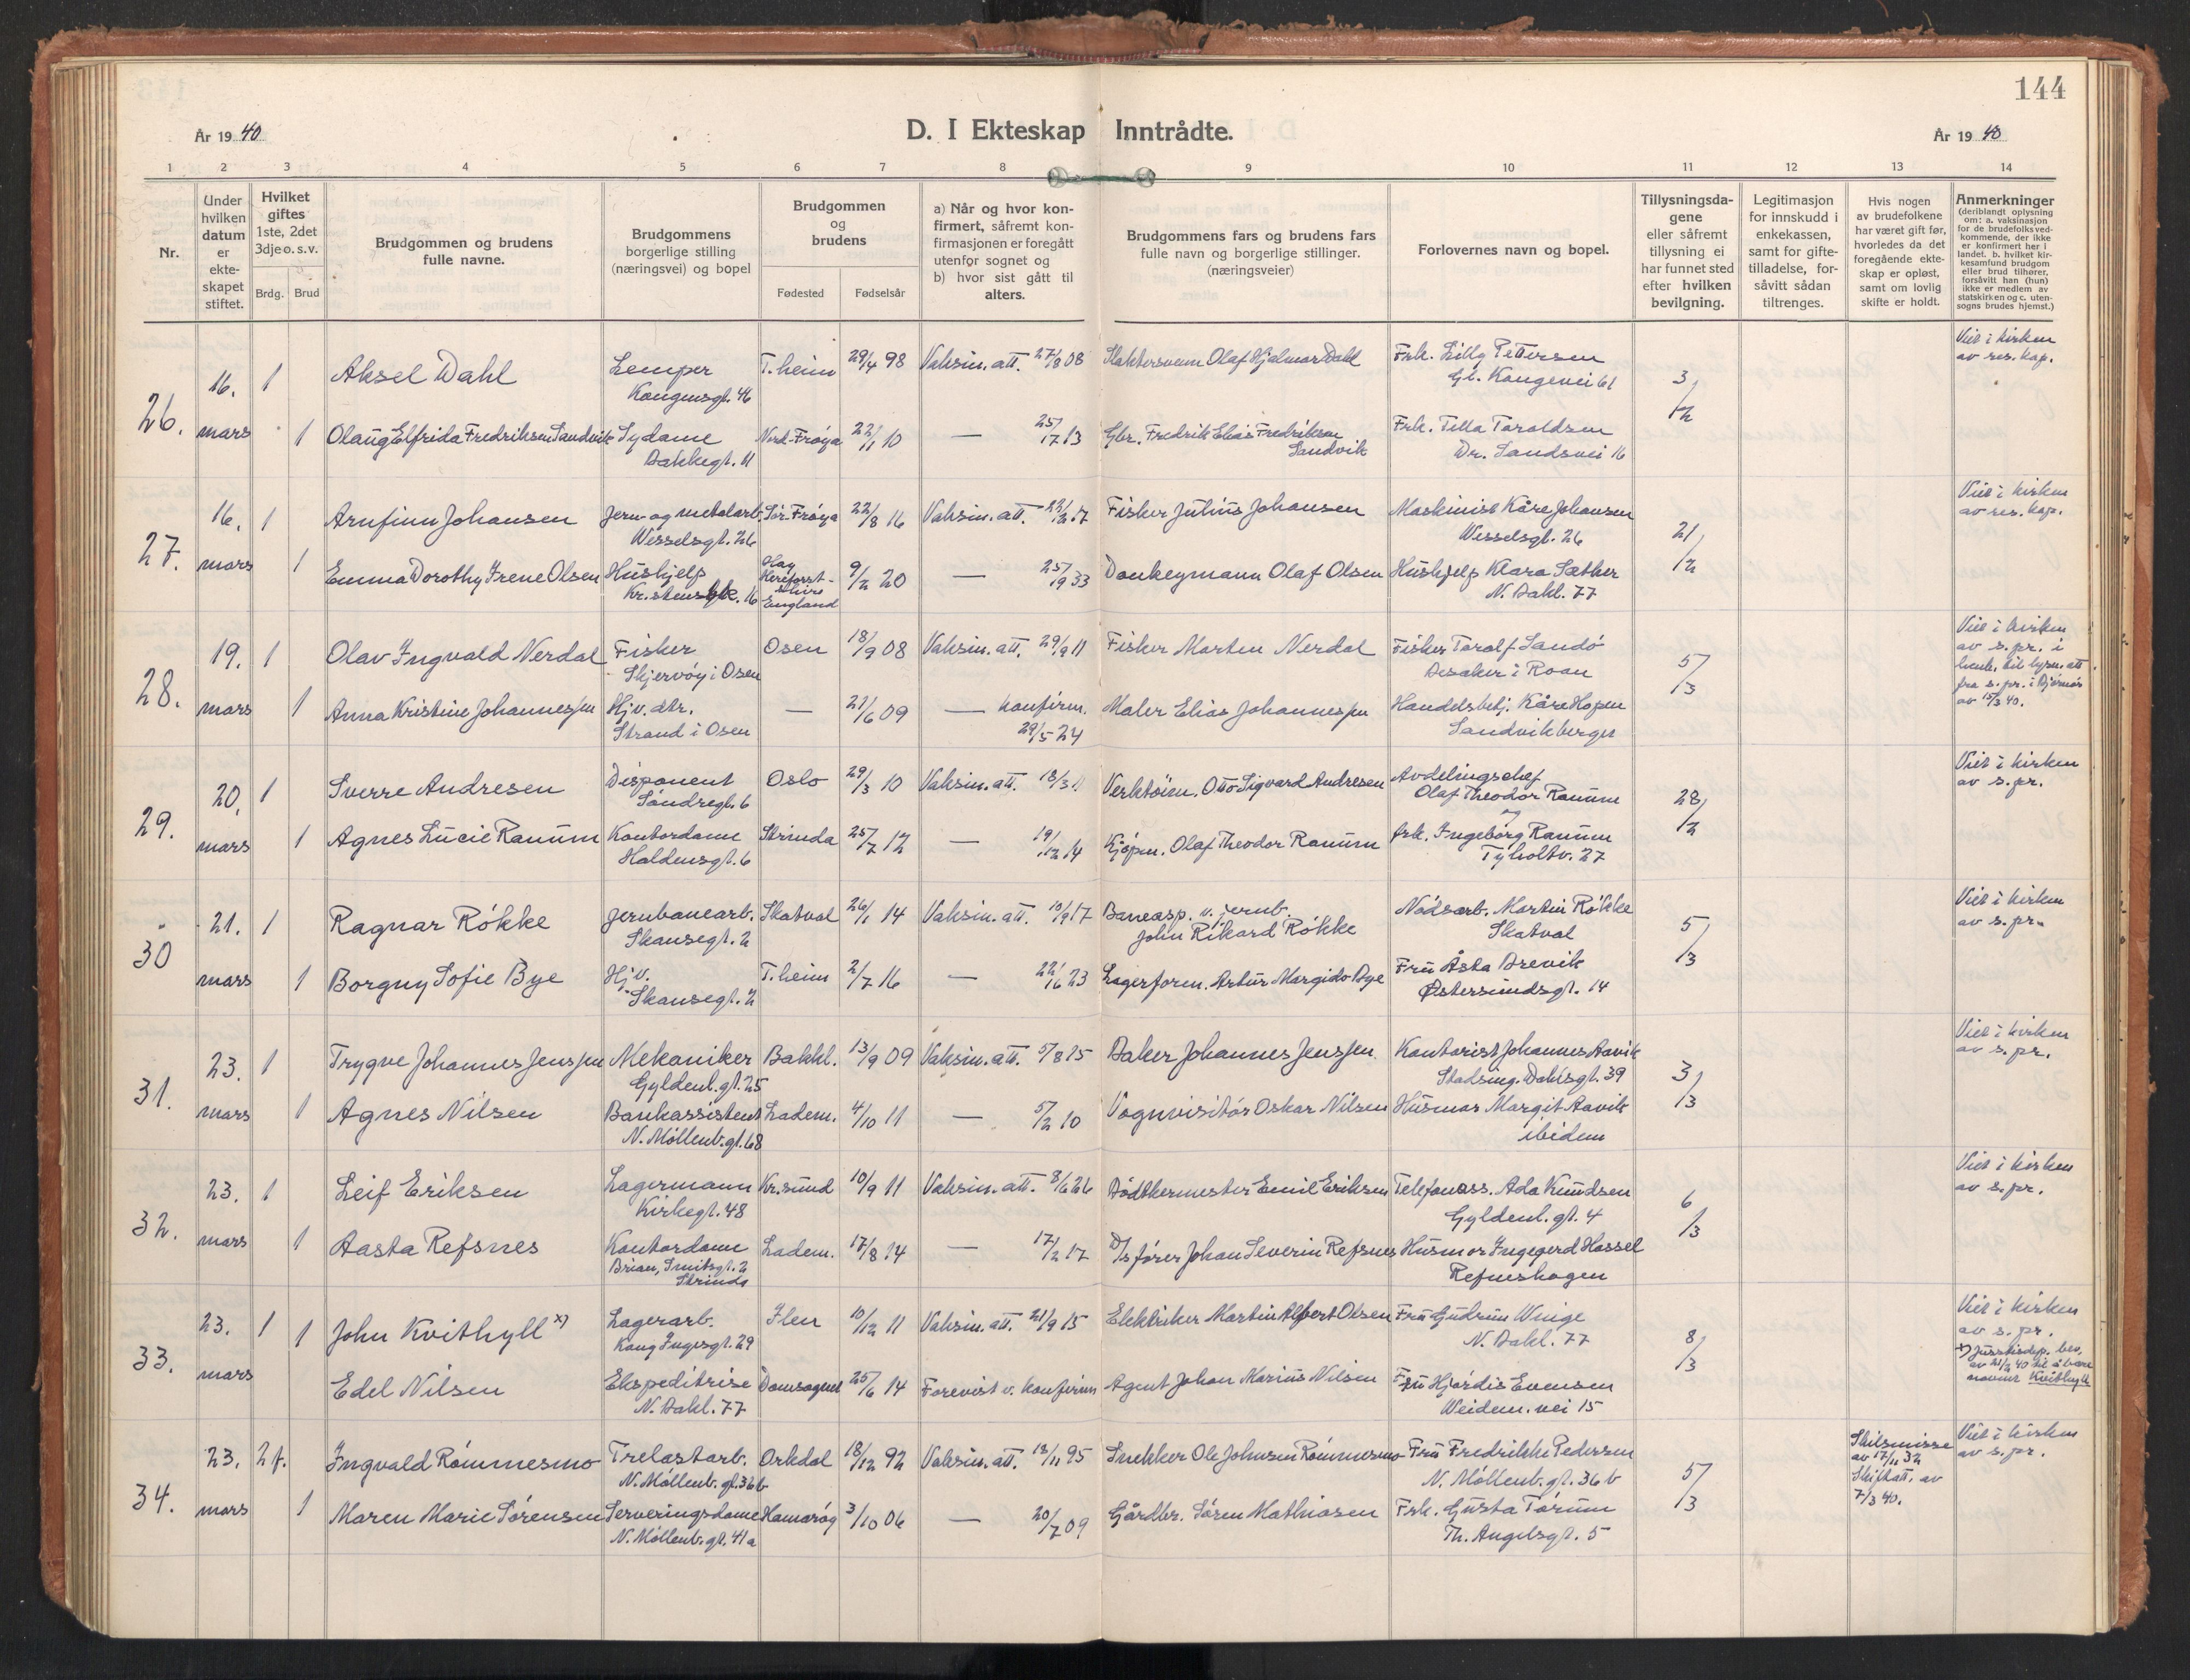 144
År 19 40
D. I Ekteskap Inntrådte.
År 19 40
1 2 3 4 5 6 7 8 9 10 11 12 13 14
Nr.
Under hvilken datum er ekte-skapet stiftet.
Hvilket giftes 1ste, 2det 3dje o.s.v.
Brdg. Brud
Brudgommen og brudens fulle navne.
Brudgommens borgerlige stilling (næringsvei) og bopel
Brudgommen og brudens
Fødested Fødselsår
a) Når og hvor kon-firmert, såfremt kon-firmasjonen er foregått utenfor sognet og
b) hvor sist gått til alters.
Brudgommens fars og brudens fars fulle navn og borgerlige stillinger. (næringsveier)
Forlovernes navn og bopel.
Tillysningsda-gene eller såfremt tillysning ei har funnet sted efter hvilken bevilgning.
Legitimasjon for innskudd i enkekassen, samt for gifte-tilladelse, for-såvitt sådan tiltrenges.
Hvis nogen av brudefolkene har været gift før, hvorledes da det foregående ekte-skap er opløst, samt om lovlig skifte er holdt.
Anmerkninger (deriblandt oplysning om: a. vaksinasjon for de brudefolks ved-kommende, der ikke er konfirmert her i landet. b. hvilket kir-kesamfund brudgom eller brud tilhører, forsåvitt han (hun) ikke er medlem av statskirken og c. uten-sogns brudes hjemst.)
26. 16. mars 1 Aksel Dahl Lemper T.heim 29/4 98 Vaksin. att. 27/8 08 Slaktersvenn Olaf Hjalmar Dahl Frk. Lilly Pettersen 3/2 Viet i kirken
Kongensgt. 46 Gl. Kongevei 61 av res. kap.
1 Olaug Elfrida Fredriksen Sandvik Sydame Nord-Frøya 22/1 10 — 25/7 13 Gbr. Fredrik Elias Fredriksen Frk. Tella Taraldsen
Bakkegt. 11 Sandvik Dr. Sandsvei 16
27. 16. mars 1 Arnfinn Johansen Jern- og metalarb. Sør-Frøya 22/8 16 Vaksin. att. 22/2 17 Fisker Julius Johansen Maskinist Kåre Johansen 21/2 Viet i kirken
Wesselsgt. 26 Wesselsgt. 26 av res. kap.
1 Emma Dorothy Irene Olsen Hushjelp Hay Hereforst-shire England 9/2 20 — 25/9 33 Donkeymann Olaf Olsen Hushjelp Klara Sæther
16 N. Bakl. 77
28. 19. mars 1 Olav Ingvald Nerdal Fisker Osen 18/9 08 Vaksin. att. 29/9 11 Fisker Morten Nerdal Fisker Toralf Sandø 5/3 Viet i kirken
Skjervøy i Osen Besaker i Roan av s.pr. i
henh. til lysn. att
fra s.pr. i Bjørnør
av 15/3 40.
1 Anna Kristine Johannessen Hjv. dtr. — 21/6 09 — konfirm. Maler Elias Johannessen Handelsbetj. Kåre Hopen
Strand i Osen 29/5 24 Sandvikberget
29. 20. mars 1 Sverre Andresen Disponent Oslo 29/3 10 Vaksin. att. 18/3 11 Verktøim. Otto Sigvard Andresen Avdelingschef 28/2 Viet i kirken
Søndregt. 6 Olaf Theodor Ranum av s.pr.
og
1 Agnes Lucie Ranum Kontordame Strinda 25/7 12 — 19/12 14 Kjøpm. Olaf Theodor Ranum frk. Ingeborg Ranum
Haldensgt. 6 Tyholtv. 27
30 21. mars 1 Ragnar Røkke Jernbanearb. Skatval 26/1 14 Vaksin. att. 10/9 17 Baneasp. v. jernb. Nødsarb. Martin Røkke 5/3 Viet i kirken
Skansegt. 2 John Rikard Røkke Skatval av s.pr.
1 Borgny Sofie Bye Hjv. T.heim 2/7 16 — 22/6 23 Lagerform. Artur Margido Bye Fru Åsta Brevik
Skansegt. 2 Østersundsgt. 14
31. 23. mars 1 Trygve Johannes Jenssen Mekaniker Bakkl. 13/9 09 Vaksin. att. 5/8 15 Baker Johannes Jenssen Kontorist Johannes Aavik 3/3 Viet i kirken
Gyldenl. gt. 25 Stadsing. Dahlsgt. 39 av s.pr.
1 Agnes Nilsen Bankassistent Ladem. 4/10 11 — 5/2 10 Vognvisitør Oskar Nilsen Husmor Margit Aavik
N. Møllenb. gt. 68 ibidem
32. 23. mars 1 Leif Eriksen Lagermann Kr.sund 10/9 11 Vaksin. att. 8/6 26 Bødkermester Emil Eriksen Telefonass. Ada Knudsen 6/3 Viet i kirken
Kirkegt. 48 Gyldenl. gt. 4 av s.pr.
1 Aasta Refsnes Kontordame Ladem. 17/8 14 — 17/2 17 D/s fører Johan Severin Refsnes Husmor Ingegerd Hassel
Brian, Smitsgt. 2 Refsneshagen
Strinda
33. 23. mars 1 1 John Kvithyll x) Lagerarb. Ilen 10/12 11 Vaksin. att. 21/9 15 Elektriker Martin Albert Olsen Fru Gudrun Winge 8/3 Viet i kirken
Kong Ingesgt. 29 N. Bakl. 77 av s.pr.
x) Justisdep. bev.
av 21/2 40 til å bære
navnet Kvithyll
Edel Nilsen Ekspeditrise Domsognet 25/6 14 Forevist v. konfirm Agent Johan Marius Nilsen Fru Hjørdis Evensen
N. Bakl. 77 Weidem. vei 15
34. 23. mars 2 f. Ingvald Rømmesmo Trelastarb. Orkdal 18/12 92 Vaksin. att. 13/11 95 Snekker Ole Johnsen Rømmesmo Fru Fredrikke Pedersen 5/3 Skilsmisse Viet i kirken
N. Møllenb. gt. 36 b N. Møllenb. gt. 36 b av 17/11 32 av s.pr.
Skifteatt. av
7/3 40.
1 Maren Marie Sørensen Serveringsdame Hamarøy 3/10 06 — 20/7 09 Gårdbr. Søren Mathiasen Frk. Gusta Tørum
N. Møllenb. gt. 41 a Th. Angelsgt. 5